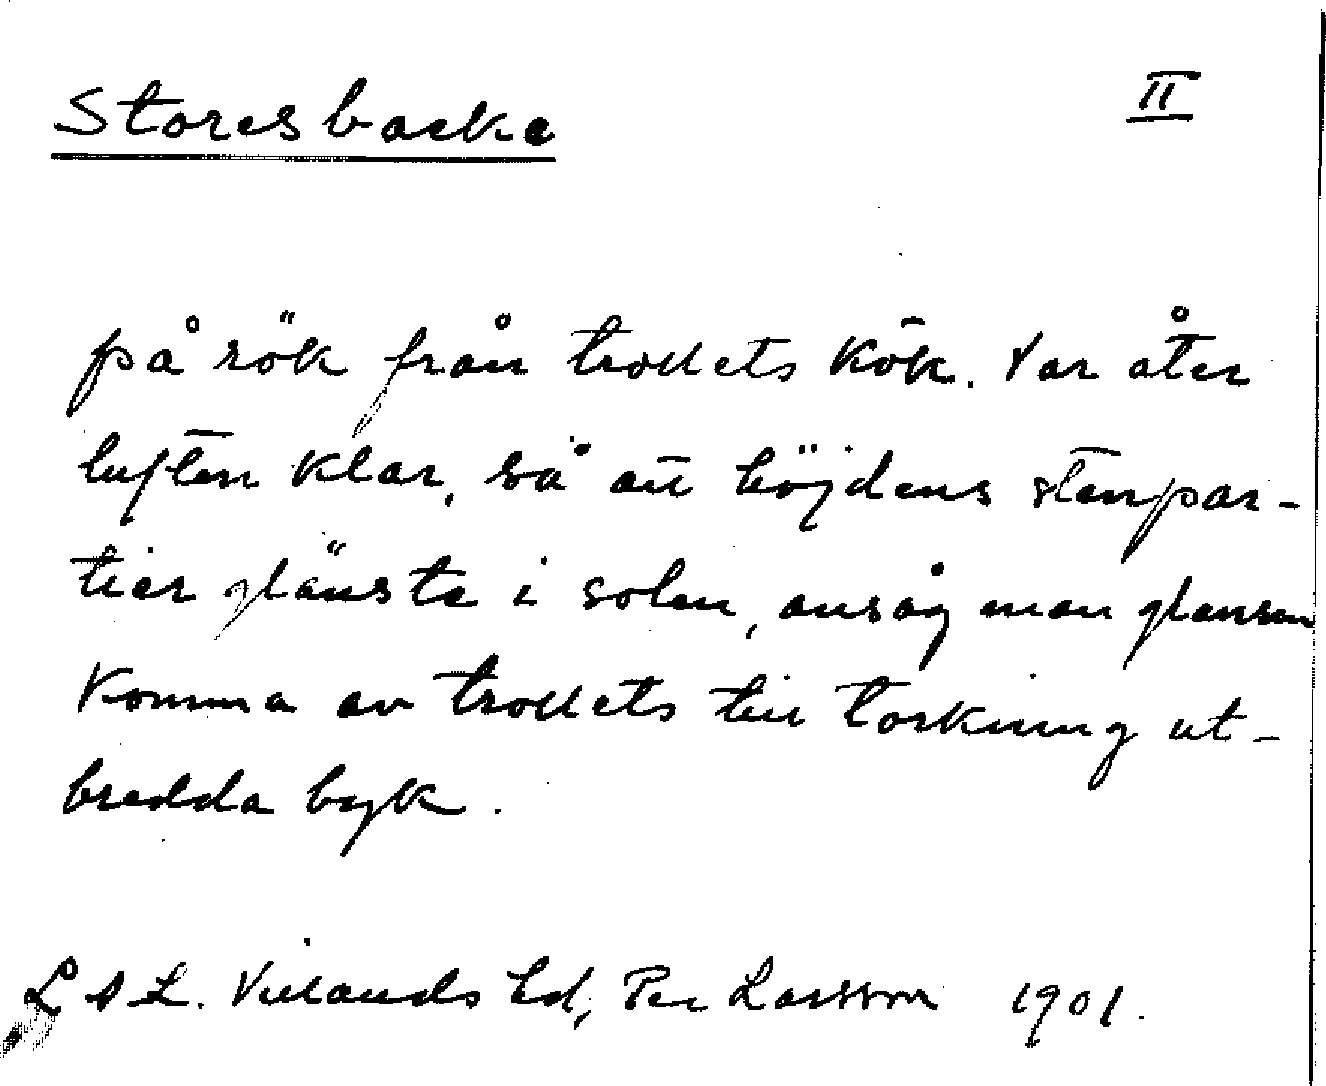 Storesbacke II
på rök från trollets kök. Var åter
luften klar, så att höjdens stenpar-
tier glänste i solen, ansåg man glansen
komma av trollets till torkning ut-
bredda byk.
L A L. Villands hd, Per Larsson 1901.